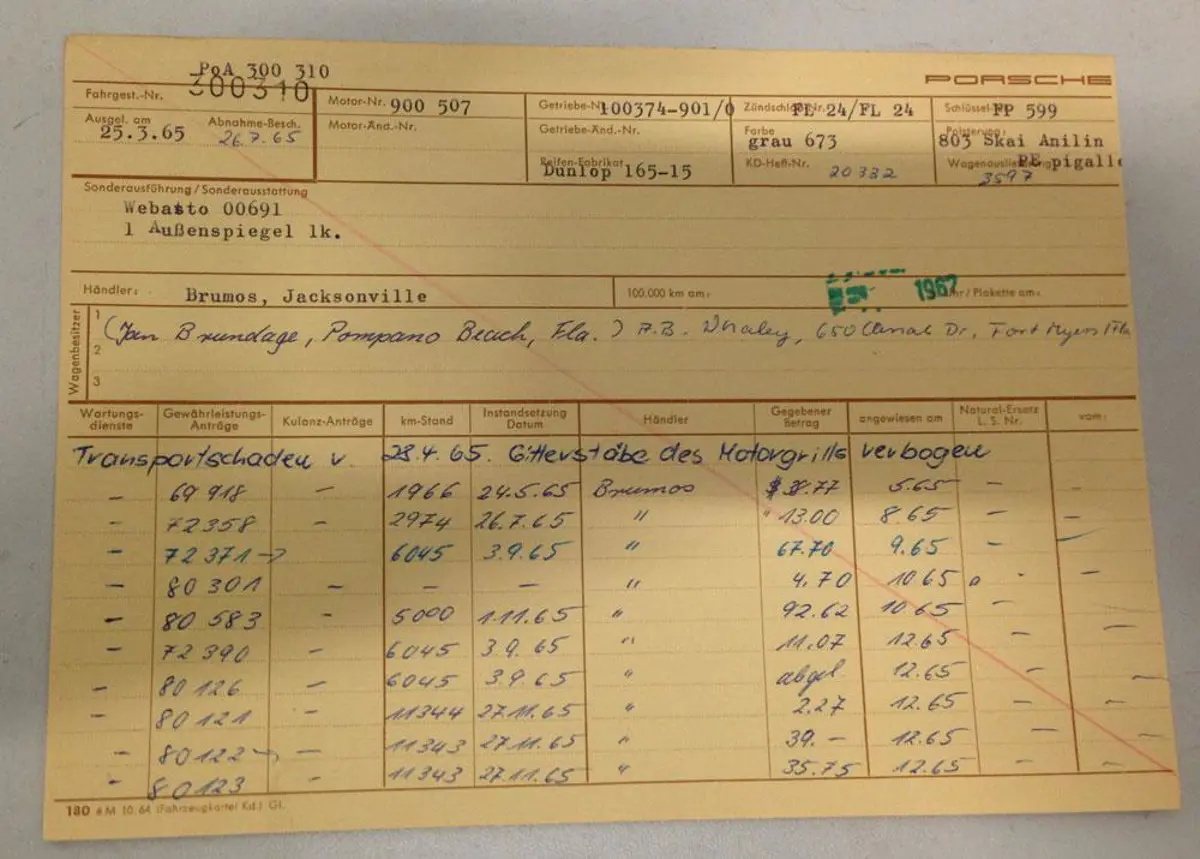 PoA 300 310
PORSCHE
Fahrgest.-Nr. 300310
Motor-Nr. 900 507
Getriebe-N 100374-901/0
Zündschloß-Nr. FL 24/FL 24
Schlüssel- FP 599
Ausgel. am 25.3.65
Abnahme-Besch. 26.7.65
Motor-Änd.-Nr.
Getriebe-Änd.-Nr.
Farbe grau 673
Polsterung: 803 Skai Anilin
Reifen-Fabrikat Dunlop 165-15
KD-Heft-Nr. 20332
Wagenauslieferung PE pigalle
3597
Sonderausführung/Sonderausstattung
Webasto 00691
1 Außenspiegel lk.
Händler: Brumos, Jacksonville
100.000 km am:
1967
/ Plakette am:
Wagenbesitzer
1 (Jan Brundage, Pompano Beach, Fla.) A.B. Whaley, 650 Canal Dr, Fort Myers Fla
2
3
Wartungs-dienste Gewährleistungs-Anträge Kulanz-Anträge km-Stand Instandsetzung Datum Händler Gegebener Betrag angewiesen am Natural-Ersatz L. S. Nr. vom:
Transportschaden v. 28.4.65. Gitterstäbe des Motorgrills verbogen
– 69 918 – 1966 24.5.65 Brumos $ 38.77 5.65 – –
– 72358 – 2974 26.7.65 " " 13.00 8.65 – –
– 72371 → 6045 3.9.65 " 67.70 9.65 – –
– 80 301 – – – " 4.70 10 65 –
– 80 583 5000 1.11.65 " 92.62 10.65 – –
– 72390 – 6045 3.9.65 " 11.07 12.65 – –
– 80126 – 6045 3.9.65 " abgel. 12.65 – –
– 80 121 – 11344 27.11.65 " 2.27 12.65 – –
– 80122 → – 11343 27.11.65 " 39.– 12.65 – –
– 80123 – 11343 27.11.65 " 35.75 12.65 – –
180 6M 10.64 (Fahrzeugkartei Kd.) Gl.